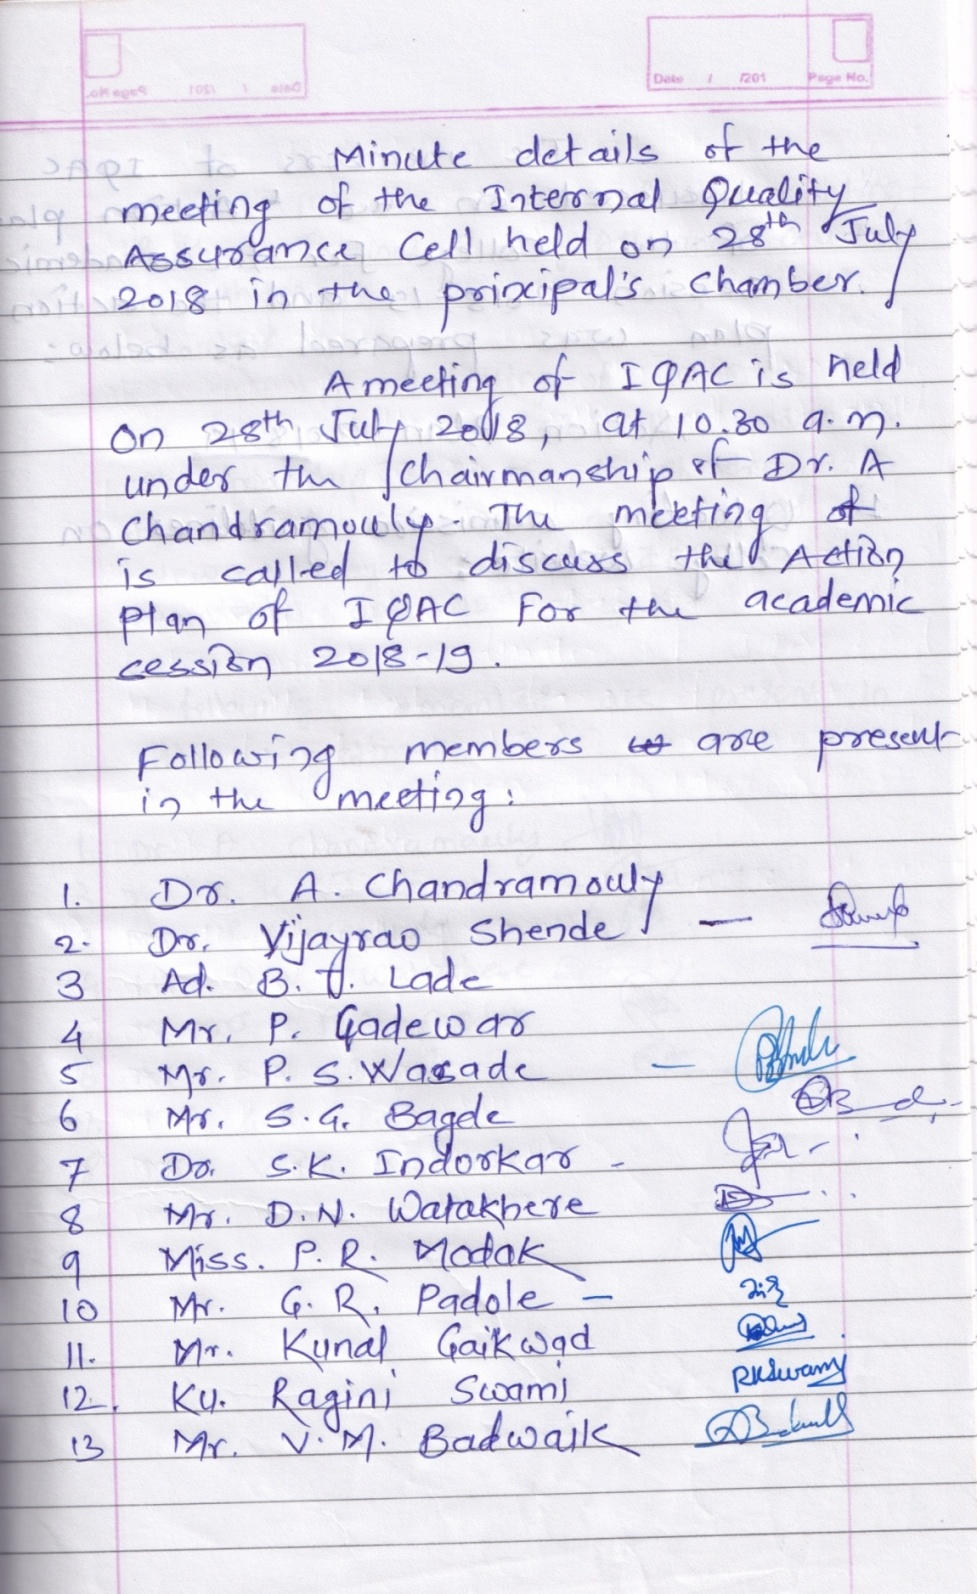 Date / /201 Page No.
Minute details of the
meeting of the Internal Quality
Assurance Cell held on 28th July
2018 in the principal's chamber.
A meeting of IQAC is held
on 28th July 2018, at 10.30 a.m.
under the Chairmanship of Dr. A
Chandramouly. The meeting of
is called to discuss the Action
plan of IQAC For the academic
cession 2018-19.
Following members are present
in the meeting:
1. Dr. A. Chandramouly
2. Dr. Vijayrao Shende —
3 Ad. B. U. Lade
4 Mr. P. Gadewar
5 Mr. P. S. Wasade —
6 Mr. S. G. Bagde
7 Dr. S. K. Indorkar -
8 Mr. D. N. Watakhere
9 Miss. P. R. Modak
10 Mr. G. R. Padole —
11. Mr. Kunal Gaikwad
12. Ku. Ragini Swami RKSwamy
13 Mr. V. M. Badwaik